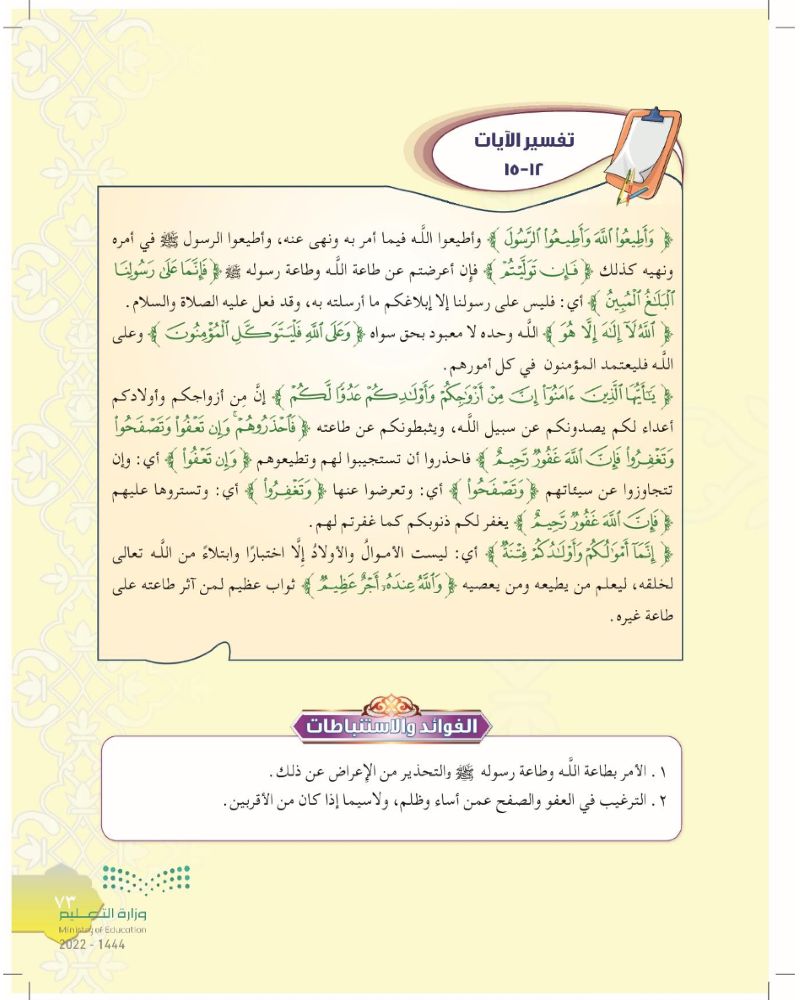 تفسير الآيات
١٢-١٥
﴿ وَأَطِيعُوا۟ ٱللَّهَ وَأَطِيعُوا۟ ٱلرَّسُولَ ﴾ وأطيعوا اللَّه فيما أمر به ونهى عنه، وأطيعوا الرسول ﷺ في أمره
ونهيه كذلك ﴿ فَإِن تَوَلَّيْتُمْ ﴾ فإن أعرضتم عن طاعة اللَّه وطاعة رسوله ﷺ ﴿ فَإِنَّمَا عَلَىٰ رَسُولِنَا
ٱلْبَلَٰغُ ٱلْمُبِينُ ﴾ أي: فليس على رسولنا إلا إبلاغكم ما أرسلته به، وقد فعل عليه الصلاة والسلام.
﴿ ٱللَّهُ لَآ إِلَٰهَ إِلَّا هُوَ ﴾ اللَّه وحده لا معبود بحق سواه ﴿ وَعَلَى ٱللَّهِ فَلْيَتَوَكَّلِ ٱلْمُؤْمِنُونَ ﴾ وعلى
اللَّه فليعتمد المؤمنون في كل أمورهم.
﴿ يَٰٓأَيُّهَا ٱلَّذِينَ ءَامَنُوٓا۟ إِنَّ مِنْ أَزْوَٰجِكُمْ وَأَوْلَٰدِكُمْ عَدُوًّا لَّكُمْ ﴾ إنَّ مِن أزواجكم وأولادكم
أعداء لكم يصدونكم عن سبيل اللَّه، ويثبطونكم عن طاعته ﴿ فَٱحْذَرُوهُمْ ۚ وَإِن تَعْفُوا۟ وَتَصْفَحُوا۟
وَتَغْفِرُوا۟ فَإِنَّ ٱللَّهَ غَفُورٌ رَّحِيمٌ ﴾ فاحذروا أن تستجيبوا لهم وتطيعوهم ﴿ وَإِن تَعْفُوا۟ ﴾ أي: وإن
تتجاوزوا عن سيئاتهم ﴿ وَتَصْفَحُوا۟ ﴾ أي: وتعرضوا عنها ﴿ وَتَغْفِرُوا۟ ﴾ أي: وتستروها عليهم
﴿ فَإِنَّ ٱللَّهَ غَفُورٌ رَّحِيمٌ ﴾ يغفر لكم ذنوبكم كما غفرتم لهم.
﴿ إِنَّمَآ أَمْوَٰلُكُمْ وَأَوْلَٰدُكُمْ فِتْنَةٌ ﴾ أي: ليست الأموالُ والأولادُ إلَّا اختبارًا وابتلاءً من اللَّه تعالى
لخلقه، ليعلم من يطيعه ومن يعصيه ﴿ وَٱللَّهُ عِندَهُۥٓ أَجْرٌ عَظِيمٌ ﴾ ثواب عظيم لمن آثر طاعته على
طاعة غيره.
الفوائد والاستنباطات
١. الأمر بطاعة اللَّه وطاعة رسوله ﷺ والتحذير من الإعراض عن ذلك.
٢. الترغيب في العفو والصفح عمن أساء وظلم، ولاسيما إذا كان من الأقربين.
٧٣
وزارة التعليم
Ministry of Education
2022 - 1444